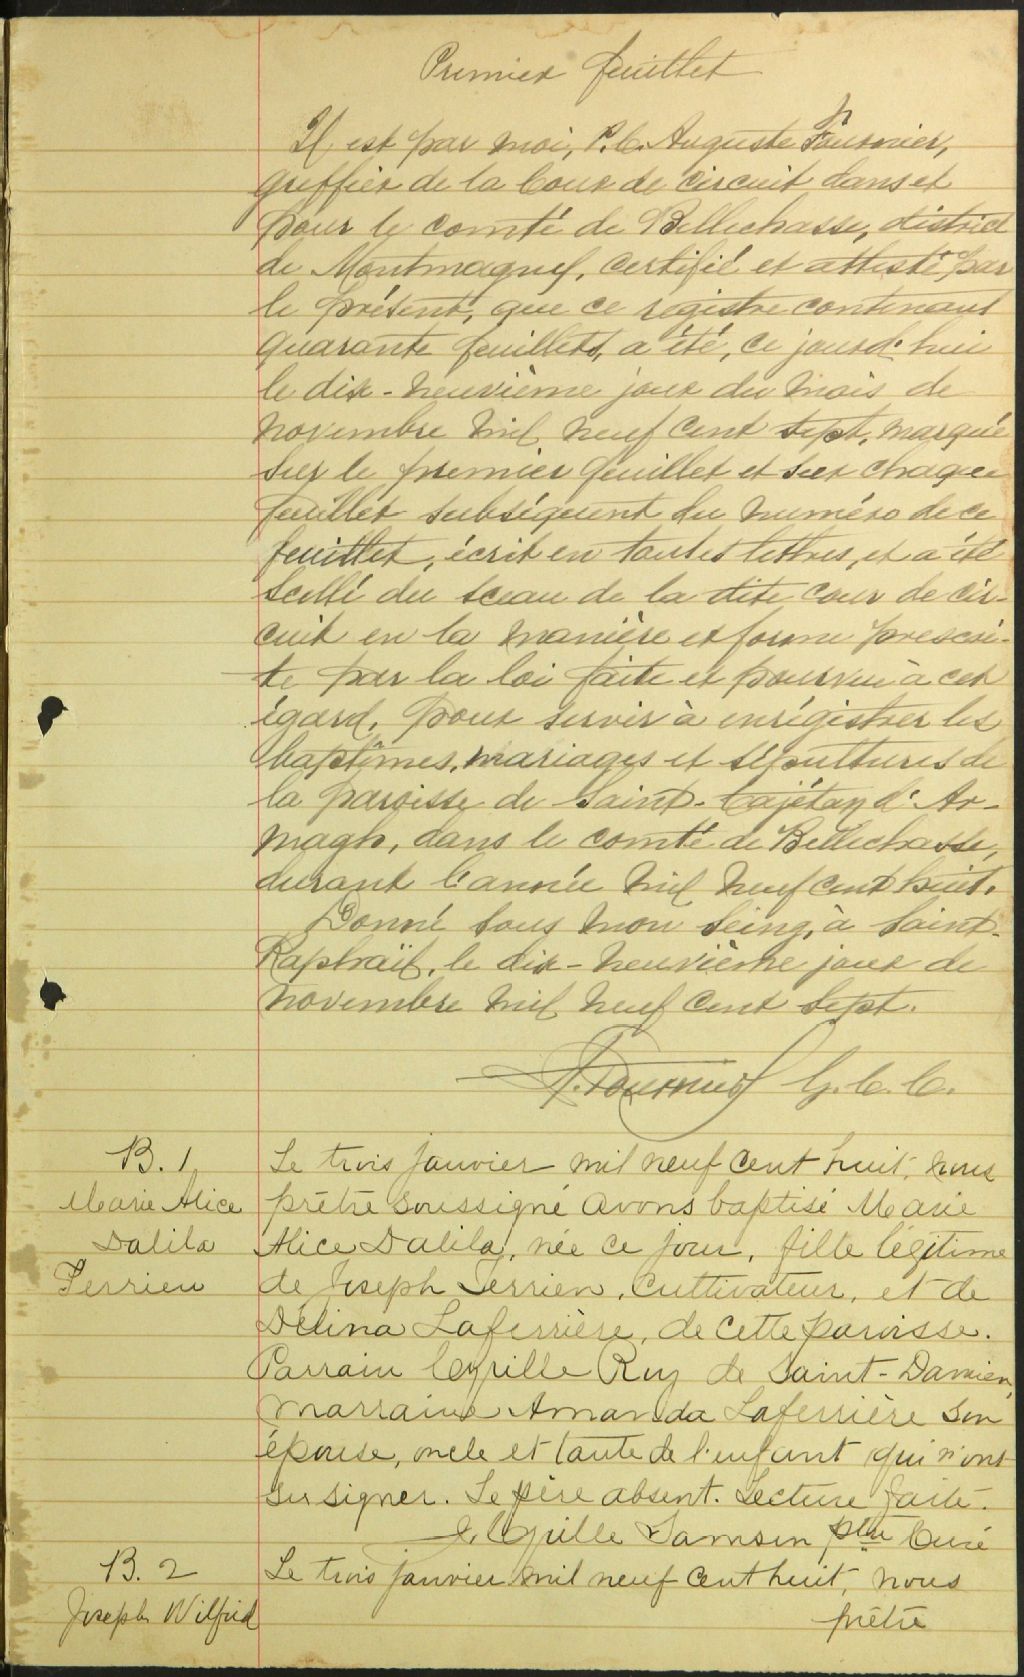 Premier feuillet
Il est par moi, P. C. Auguste Fournier,
greffier de la Cour de circuit dans et
pour le comté de Bellechasse, district
de Montmagny, certifié et attesté par
le présent, que ce registre contenant
quarante feuillets, a été, ce jourd'hui
le dix-neuvième jour du mois de
novembre mil neuf cent sept, marqué
sur le premier feuillet et sur chaque
feuillet subséquent du numéro de ce
feuillet, écrit en toutes lettres, et a été
scellé du sceau de la dite cour de cir-
cuit en la manière et forme prescri-
te par la loi faite et pourvue à cet
égard, pour servir à enrégistrer les
baptêmes, mariages et sépultures de
la paroisse de Saint-Cajétan d'Ar-
magh, dans le comté de Bellechasse,
durant l'année mil neuf cent huit.
Donné sous mon seing, à Saint-
Raphaël, le dix-neuvième jour de
novembre mil neuf cent sept.
A. Fournier G. C. C.
B. 1
Marie Alice
Dalila
Terrien
Le trois janvier mil neuf cent huit, nous
prêtre soussigné avons baptisé Marie
Alice Dalila, née ce jour, fille légitime
de Joseph Terrien, cultivateur, et de
Délina Laferrière, de cette paroisse.
Parrain Cyrille Roy de Saint-Damien,
marraine Amanda Laferrière son
épouse, oncle et tante de l'enfant qui n'ont
su signer. Le père absent. Lecture faite.
Cyrille Samson ptre Curé
B. 2
Joseph Wilfrid
Le trois janvier mil neuf cent huit, nous
prêtre